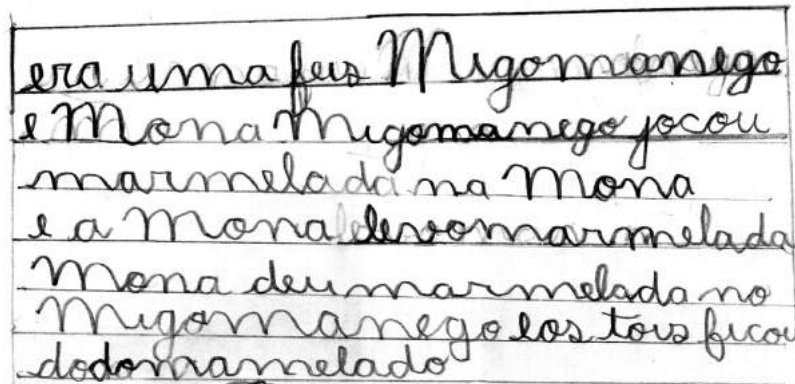 era uma feis Migomanego
e Mona Migomanego jocou
marmelada na Mona
e a Mona devomarmelada
Mona deu marmelada no
Migomanego eos tois ficou
dodomamelado